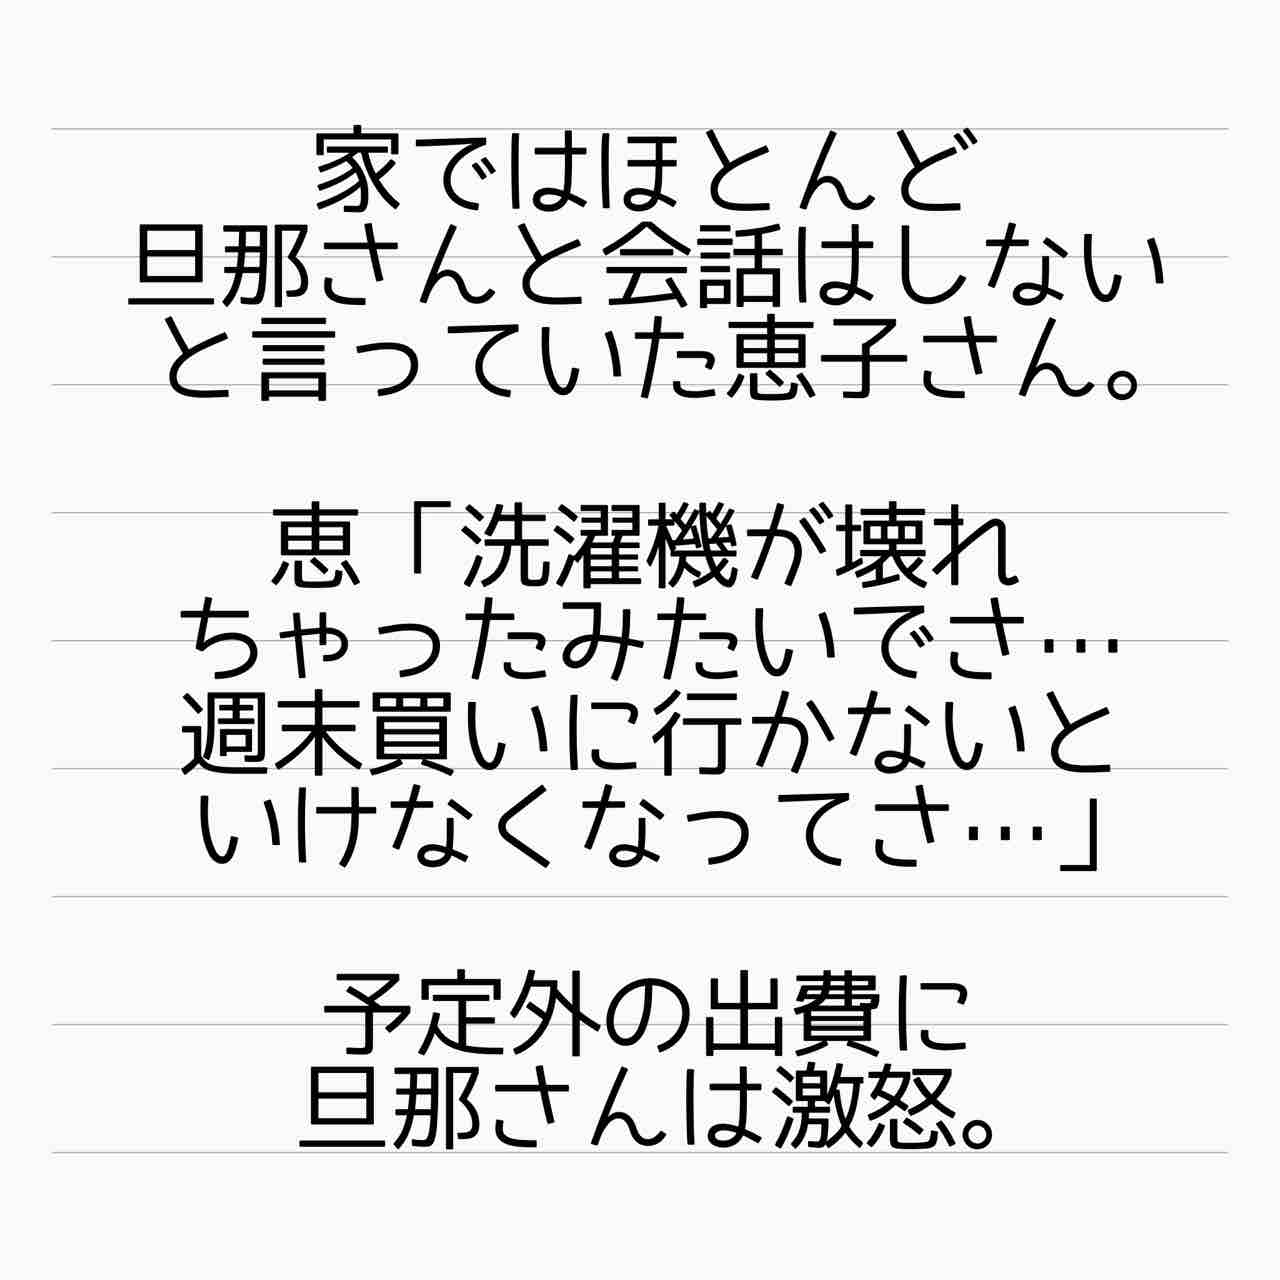 家ではほとんど
旦那さんと会話はしない
と言っていた恵子さん。
恵「洗濯機が壊れ
ちゃったみたいでさ…
週末買いに行かないと
いけなくなってさ…」
予定外の出費に
旦那さんは激怒。